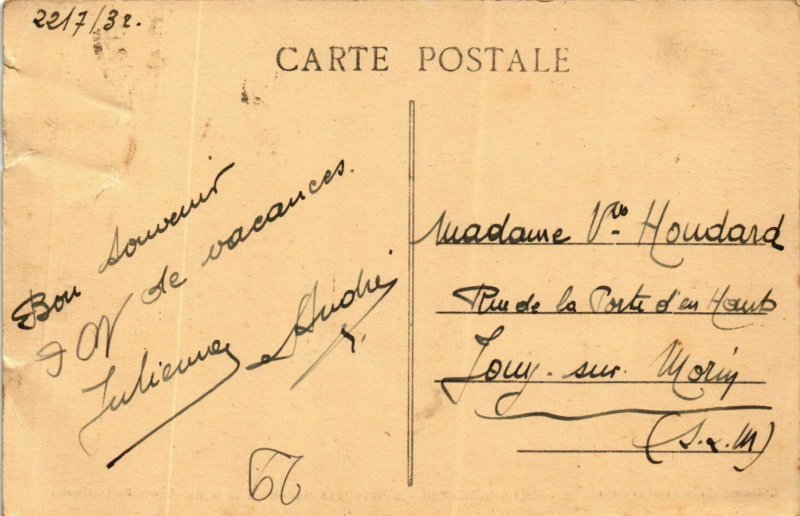 22/7/32.
CARTE POSTALE
Bon souvenir
de vacances.
Julienne André
Madame Vve Houdard
Rue de la Porte d'en Haut
Jouy-sur-Morin
(S.&.M)